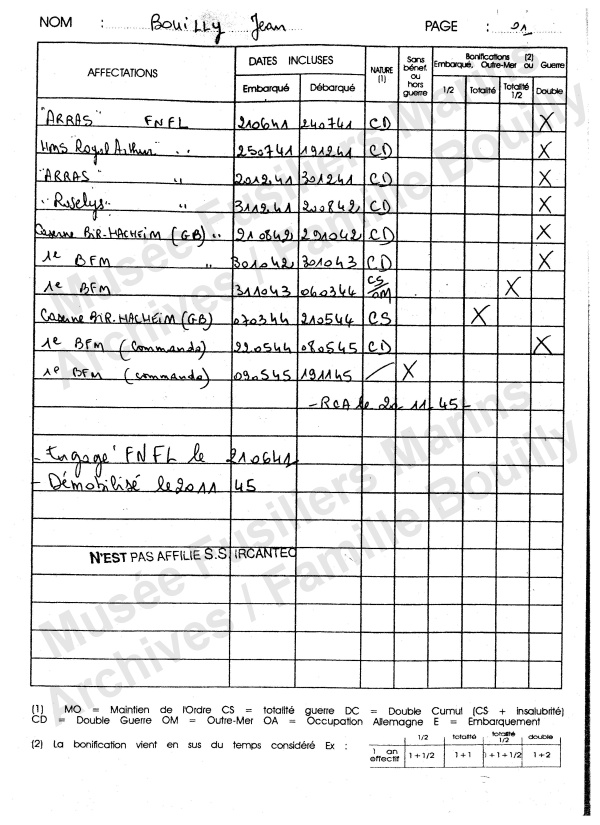 NOM : Bouilly Jean PAGE : 21
AFFECTATIONS DATES INCLUSES NATURE (1) Sans bénef. ou hors guerre Bonifications (2) Embarqué, Outre-Mer ou Guerre
Embarqué Débarqué 1/2 Totalité Totalité 1/2 Double
"ARRAS" FNFL 210641 240741 CD X
HMS Royal Arthur " 250741 191241 CD X
"ARRAS" " 201241 301241 CD X
"Roselys" " 311241 200842 CD X
Caserne BIR-HACHEIM (GB) " 210842 291042 CD X
1e BFM " 301042 301043 CD X
1e BFM 311043 060344 CS/OM X
Caserne BIR-HACHEIM (GB) 070344 210544 CS X
1e BFM (Commando) 220544 080545 CD X
1e BFM (commando) 090545 191145 / X
- RCA le 20-11-45-
- Engagé FNFL le 210641
- Démobilisé le 2011 45
N'EST PAS AFFILIE S.S. IRCANTEC
Musée Fusiliers Marins
Archives / Famille Bouilly
Musée Fusiliers Marins
Archives / Famille Bouilly
(1) MO = Maintien de l'Ordre CS = totalité guerre DC = Double Cumul (CS + insalubrité)
CD = Double Guerre OM = Outre-Mer OA = Occupation Allemagne E = Embarquement
(2) La bonification vient en sus du temps considéré Ex :
1/2 totalité totalité 1/2 double
1 an effectif 1+1/2 1+1 1+1+1/2 1+2